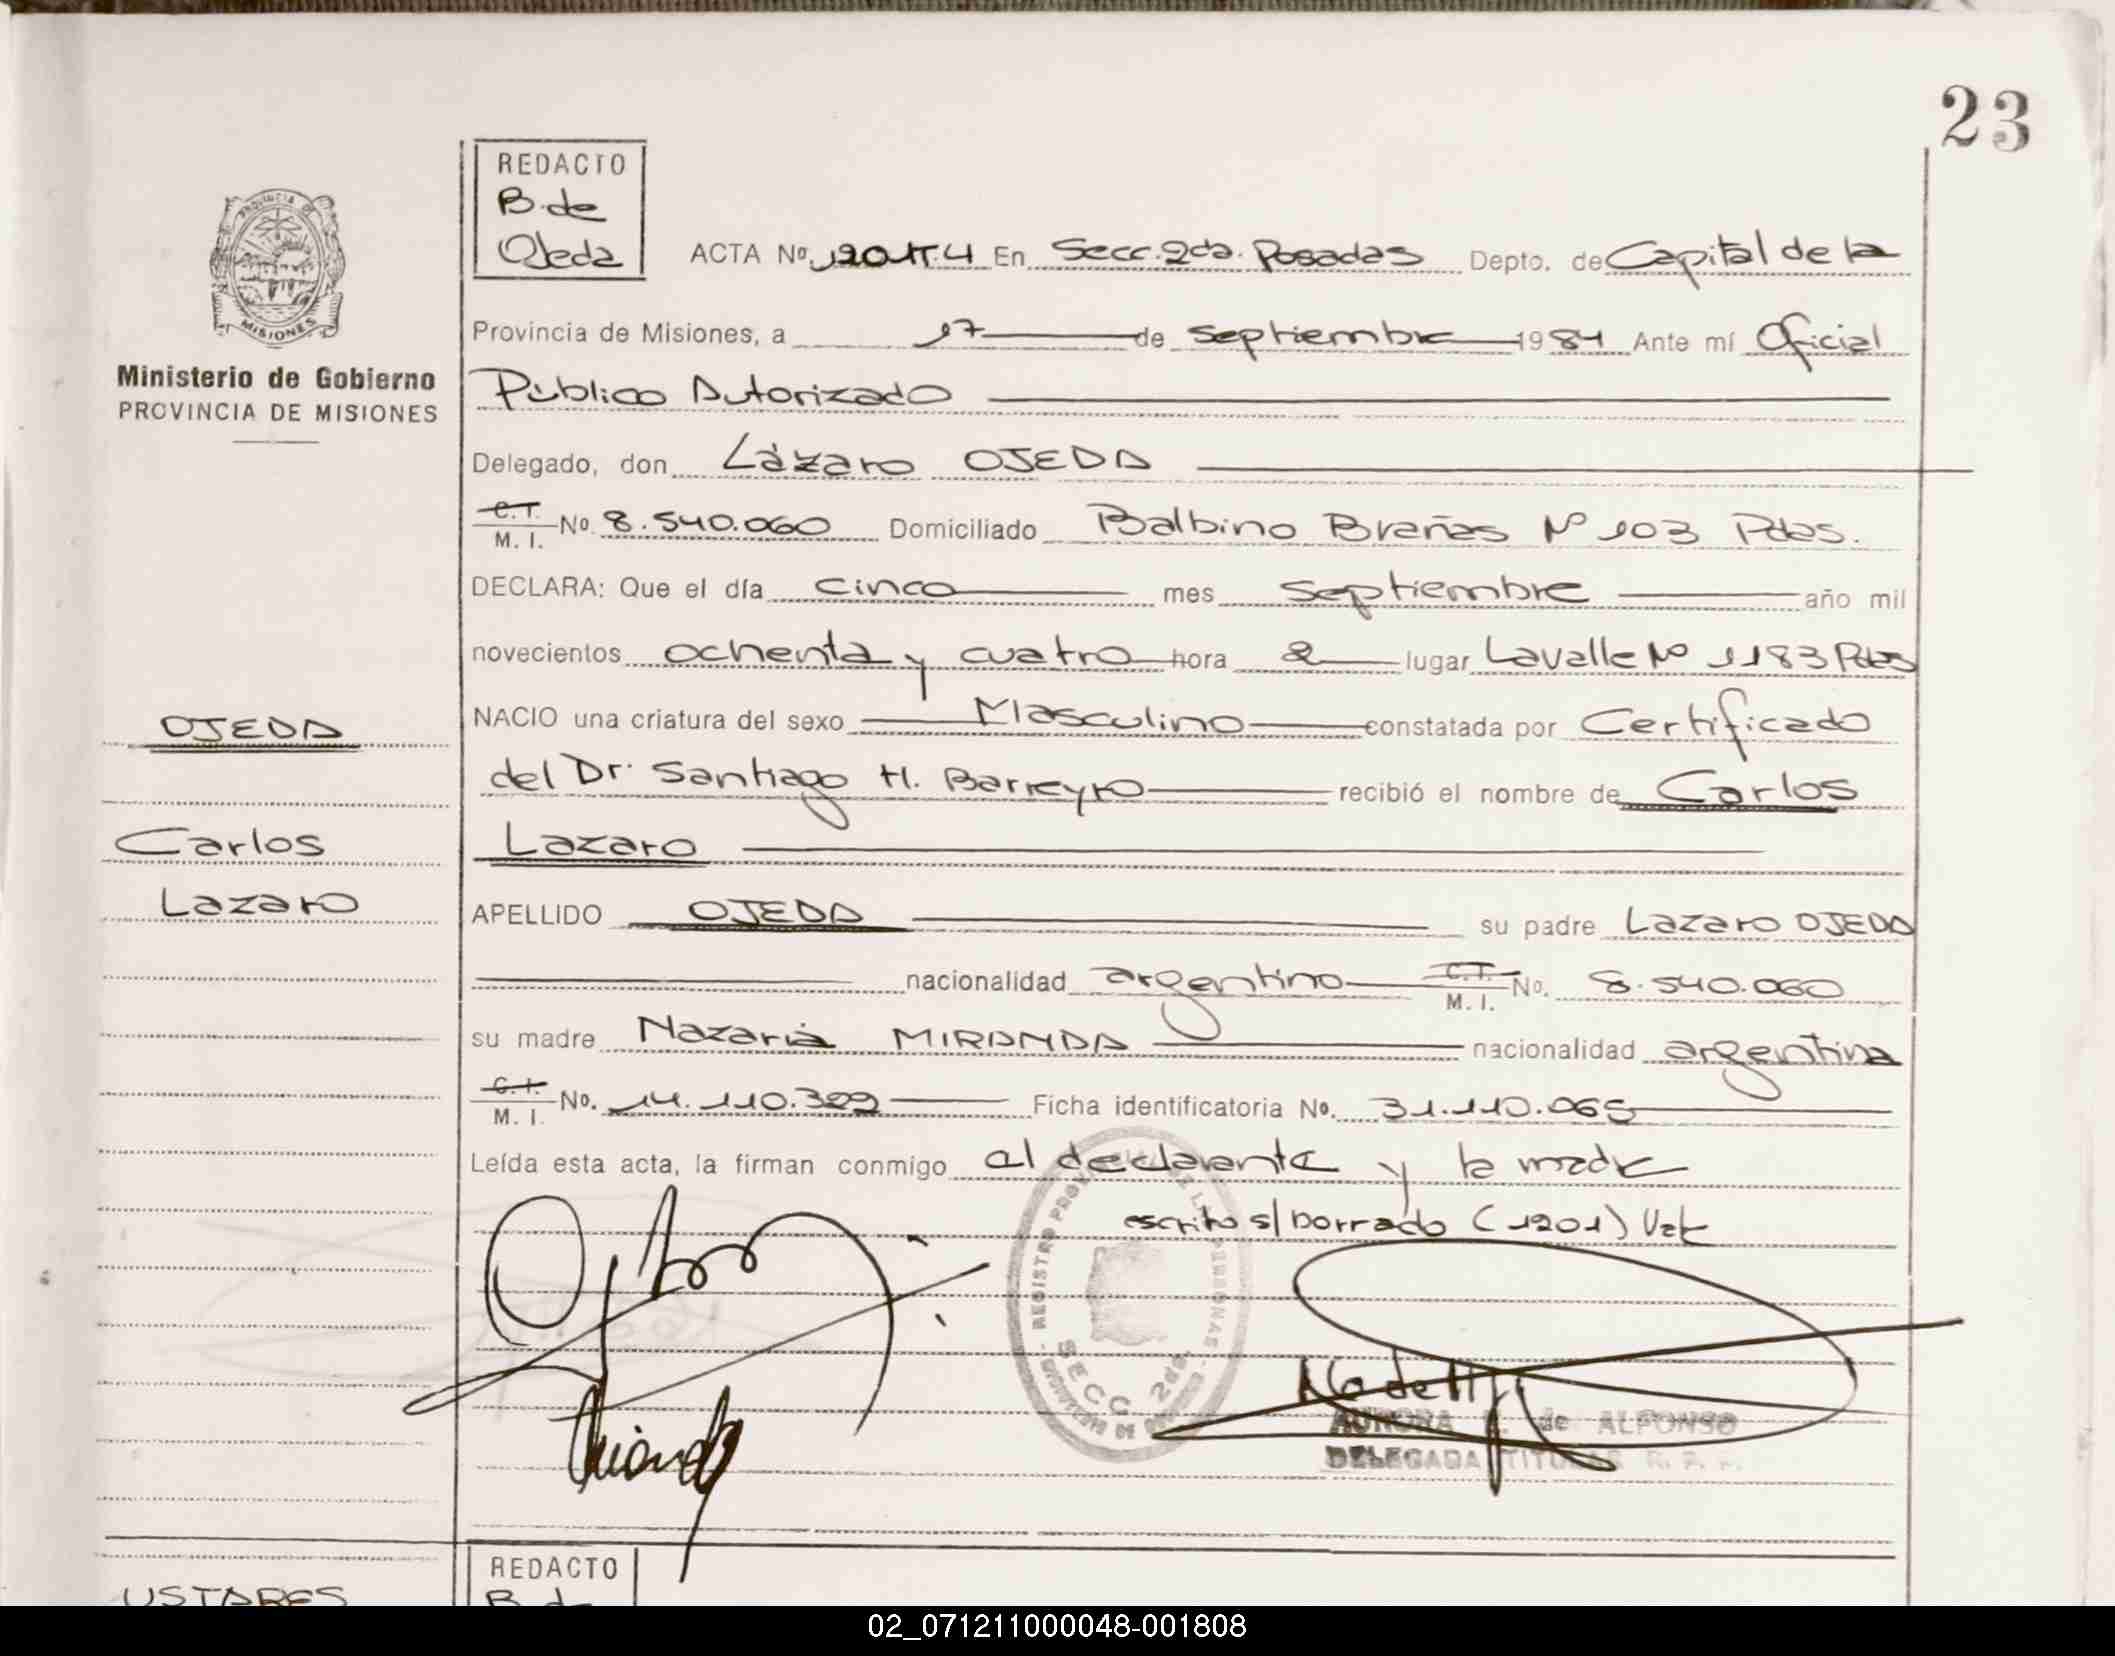 23
REDACTO
B. de
Ojeda
ACTA No. 1201 T.4 En Secc. 2da. Posadas Depto. de Capital de la
PROVINCIA DE
MISIONES
Ministerio de Gobierno
PROVINCIA DE MISIONES
Provincia de Misiones, a 17 de septiembre 1984 Ante mí Oficial
Público Autorizado
Delegado, don Lázaro OJEDA
C.I. M. I. No. 8.540.060 Domiciliado Balbino Brañas Nº 103 Pdas.
DECLARA: Que el día cinco mes septiembre año mil
novecientos ochenta y cuatro hora 2 lugar Lavalle Nº 1183 Pdas
NACIO una criatura del sexo Masculino constatada por Certificado
del Dr. Santiago H. Barreyro recibió el nombre de Carlos
Lazaro
OJEDA
Carlos
Lazaro
APELLIDO OJEDA su padre Lazaro OJEDA
nacionalidad argentino C.I. M. I. No. 8.540.060
su madre Nazaria MIRANDA nacionalidad argentina
C.I. M. I. No. 14.110.399 Ficha identificatoria No. 31.110.065
Leída esta acta, la firman conmigo al declarante y la madre
escrito s/borrado (1201) Vale
REGISTRO PROVINCIAL DE LAS PERSONAS
SECC 2da.
Miranda
AURORA de ALFONSO
DELEGADA TITULAR R. P. P.
REDACTO
B. de
USTARES
02_071211000048-001808